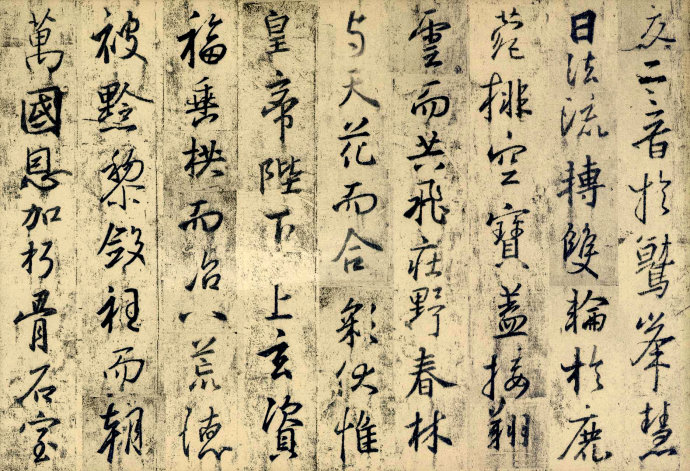 夾二音於鷲峯慧
日法流轉雙輪於鹿
菀排空寶蓋接翔
雲而共飛莊野春林
与天花而合彩伏惟
皇帝陛下上玄資
福垂拱而治八荒德
被黔黎斂衽而朝
萬國恩加朽骨石室